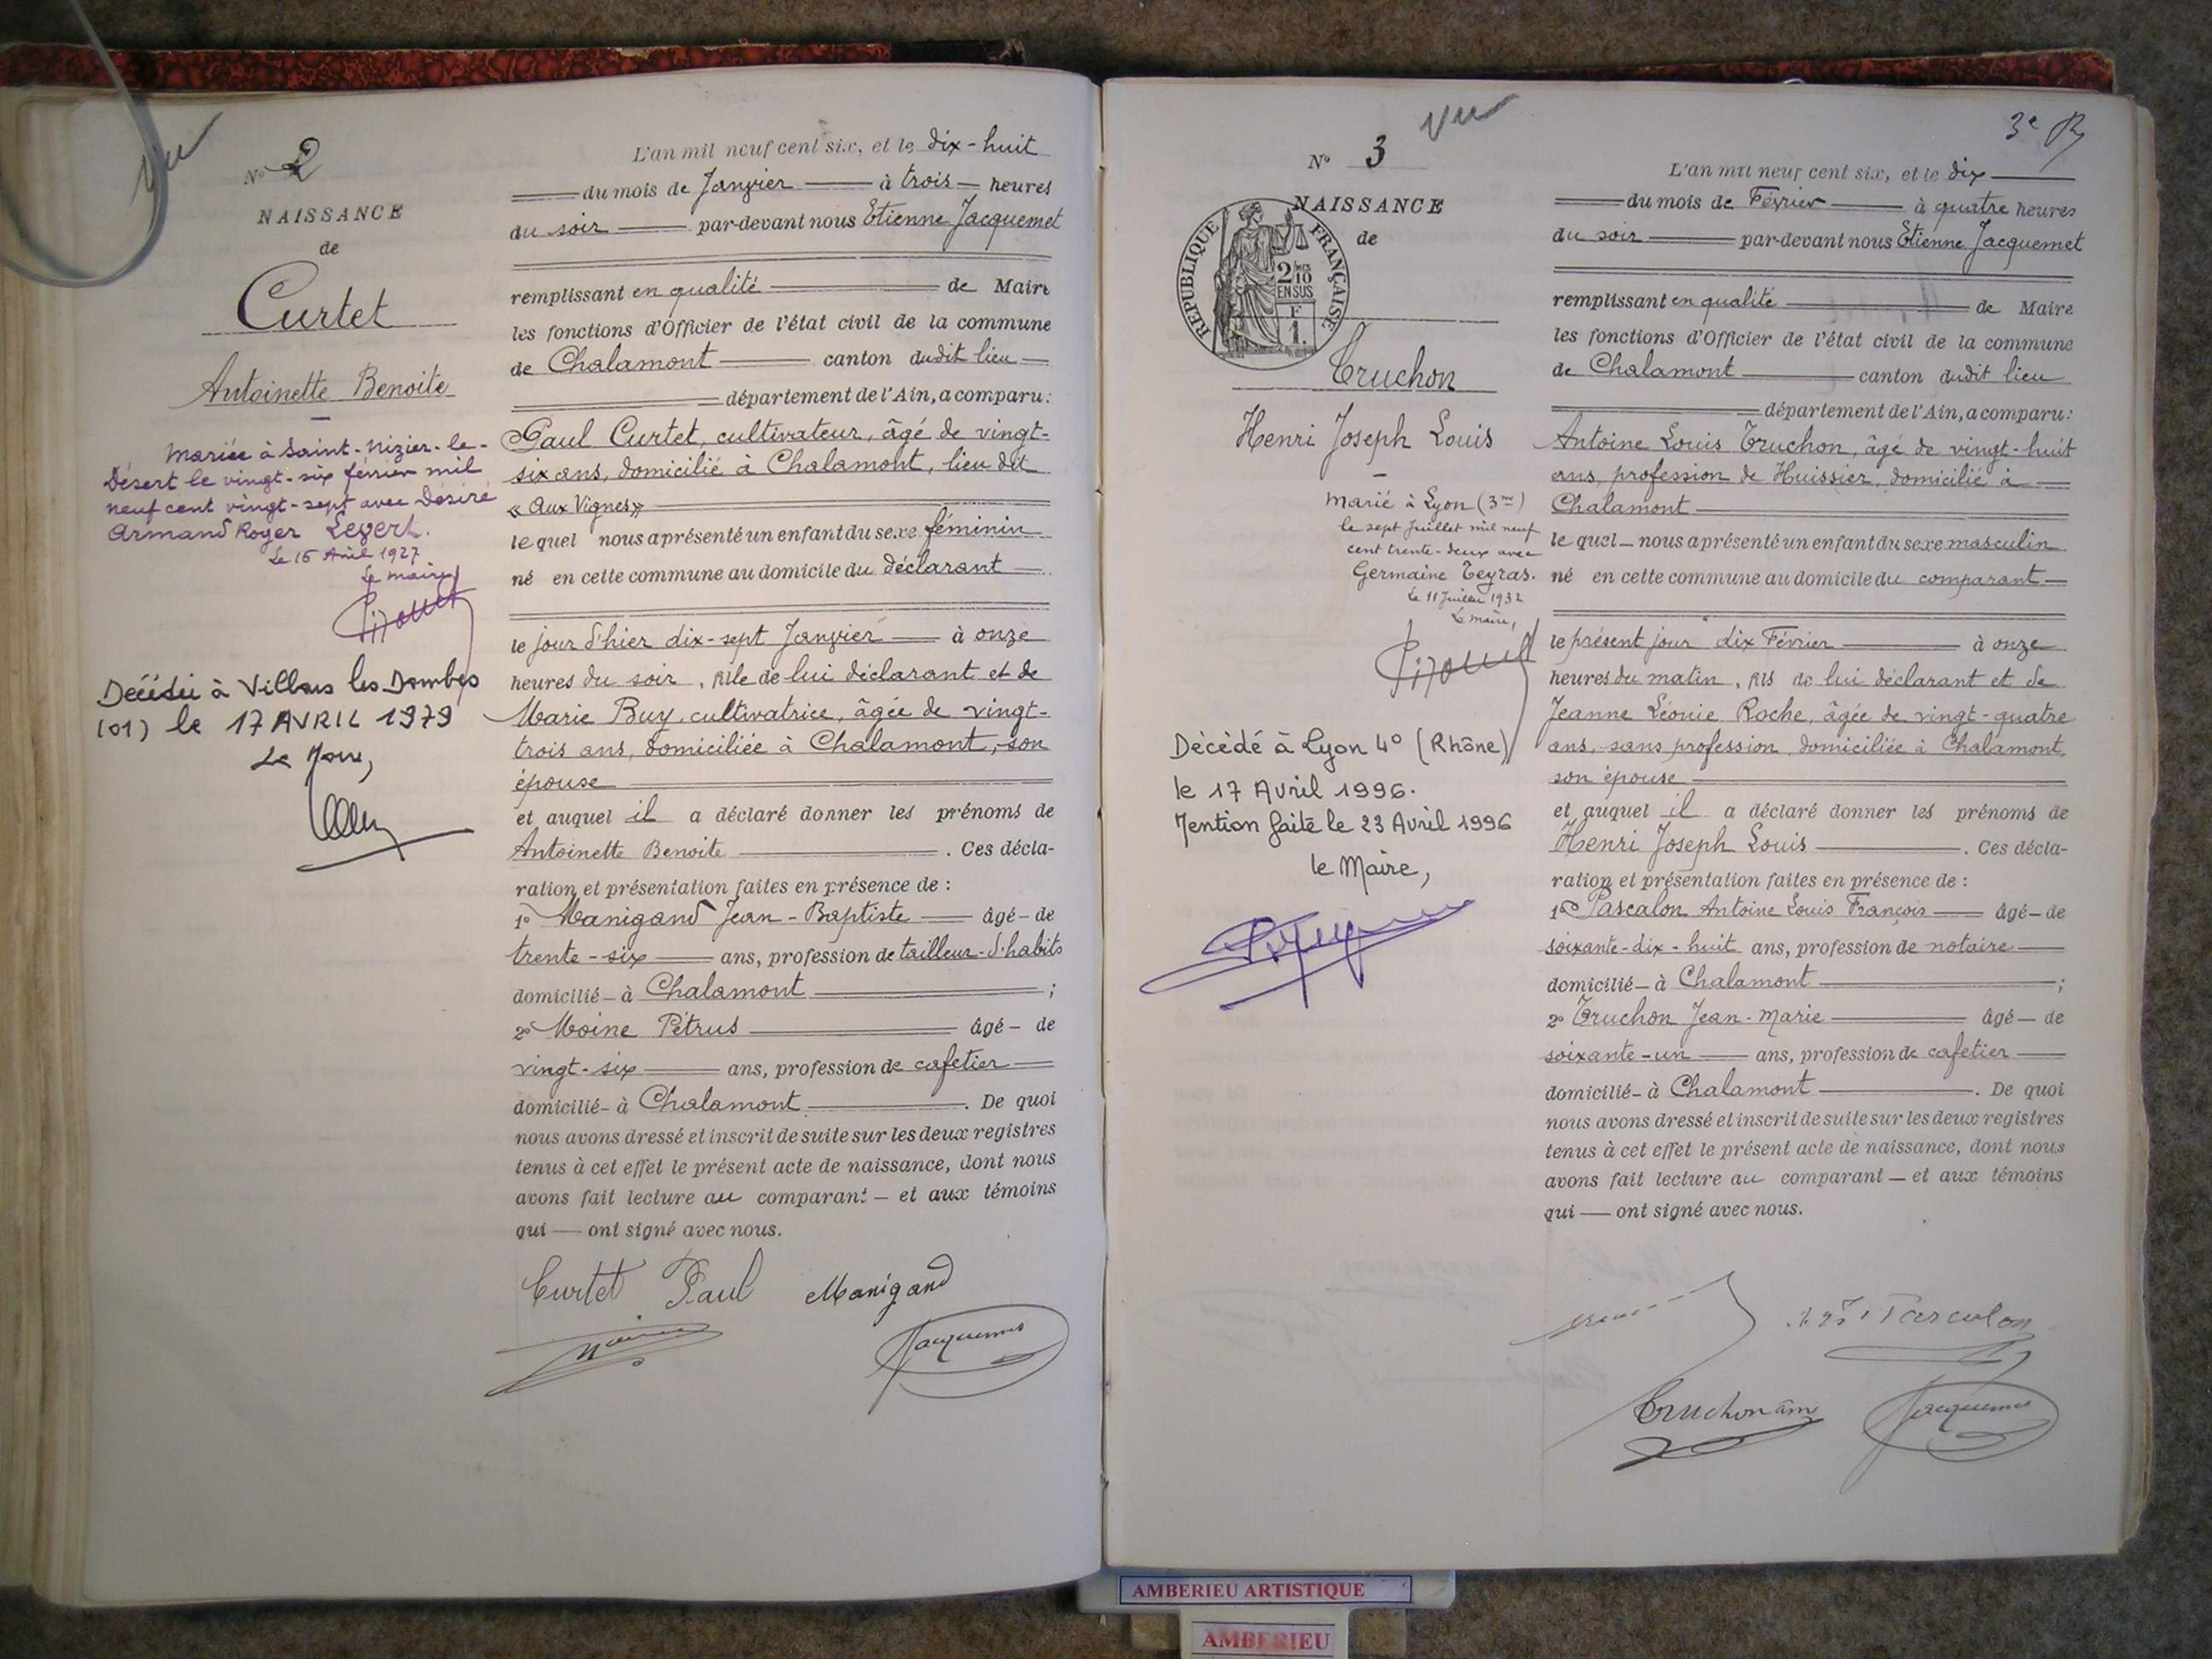 vu
N° 2
NAISSANCE
de
Curtet
Antoinette Benoite
Mariée à Saint-Nizier-le-
Désert le vingt-six février mil
neuf cent vingt-sept avec Désiré
Armand Roger Legert.
Le 15 Avril 1927
Le maire
Décédée à Villars les Dombes
(01) le 17 AVRIL 1979
Le Maire,
L'an mil neuf cent six, et le dix-huit
du mois de Janvier à trois heures
du soir par-devant nous Etienne Jacquemet
remplissant en qualité de Maire
les fonctions d'Officier de l'état civil de la commune
de Chalamont canton dudit lieu
département de l'Ain, a comparu:
Paul Curtet, cultivateur, âgé de vingt-
six ans, domicilié à Chalamont, lieu dit
« Aux Vignes »
lequel nous a présenté un enfant du sexe féminin
né en cette commune au domicile du déclarant
le jour d'hier dix-sept Janvier à onze
heures du soir, fille de lui déclarant et de
Marie Buy, cultivatrice, âgée de vingt-
trois ans, domiciliée à Chalamont, son
épouse
et auquel il a déclaré donner les prénoms de
Antoinette Benoite. Ces décla-
ration et présentation faites en présence de :
1° Manigand Jean-Baptiste âgé de
trente-six ans, profession de tailleur-d'habits
domicilié à Chalamont ;
2° Moine Pétrus âgé de
vingt-six ans, profession de cafetier
domicilié à Chalamont. De quoi
nous avons dressé et inscrit de suite sur les deux registres
tenus à cet effet le présent acte de naissance, dont nous
avons fait lecture au comparant et aux témoins
qui ont signé avec nous.
Curtet Paul Manigand
Moine Jacquemet
vu
3e
N° 3
NAISSANCE
de
REPUBLIQUE FRANÇAISE
2/10
EN SUS
1.
Truchon
Henri Joseph Louis
Marié à Lyon (3me)
le sept Juillet mil neuf
cent trente-deux avec
Germaine Teyras.
Le 11 Juillet 1932
Le maire,
Décédé à Lyon 4° (Rhône)
le 17 Avril 1996.
Mention faite le 23 Avril 1996
le Maire,
L'an mil neuf cent six, et le dix
du mois de Février à quatre heures
du soir par-devant nous Etienne Jacquemet
remplissant en qualité de Maire
les fonctions d'Officier de l'état civil de la commune
de Chalamont canton dudit lieu
département de l'Ain, a comparu:
Antoine Louis Truchon, âgé de vingt-huit
ans, profession de Huissier, domicilié à
Chalamont
lequel nous a présenté un enfant du sexe masculin
né en cette commune au domicile du comparant
le présent jour dix Février à onze
heures du matin, fils de lui déclarant et de
Jeanne Léonie Roche, âgée de vingt-quatre
ans, sans profession, domiciliée à Chalamont,
son épouse
et auquel il a déclaré donner les prénoms de
Henri Joseph Louis. Ces décla-
ration et présentation faites en présence de :
1° Pascalon Antoine Louis François âgé de
soixante-dix-huit ans, profession de notaire
domicilié à Chalamont ;
2° Truchon Jean-Marie âgé de
soixante-un ans, profession de cafetier
domicilié à Chalamont. De quoi
nous avons dressé et inscrit de suite sur les deux registres
tenus à cet effet le présent acte de naissance, dont nous
avons fait lecture au comparant et aux témoins
qui ont signé avec nous.
Pascalon
Truchon Jacquemet
AMBERIEU ARTISTIQUE
AMBERIEU